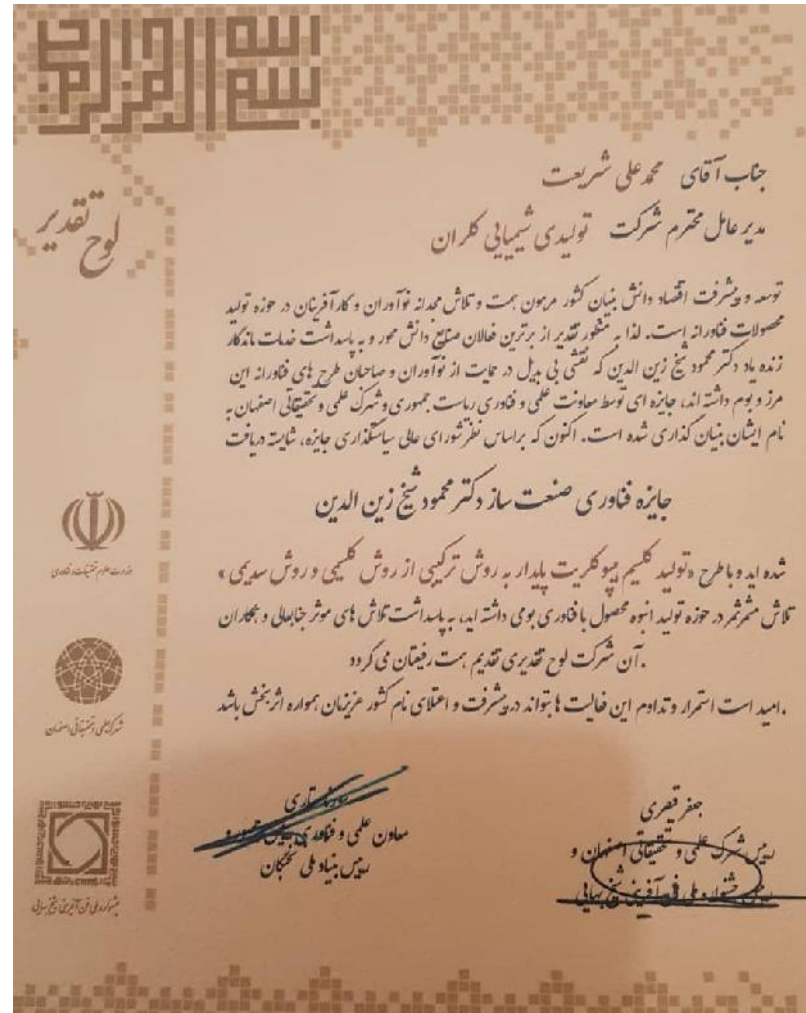 بسم الله الرحمن الرحیم
لوح تقدیر
جناب آقای محمد علی شریعت
مدیر عامل محترم شرکت تولیدی شیمیایی کلران
توسعه و پیشرفت اقتصاد دانش بنیان کشور مرهون همت و تلاش مجدانه نوآوران و کارآفرینان در حوزه تولید
محصولات فناورانه است. لذا به منظور تقدیر از برترین فعالان صنایع دانش محور و به پاسداشت خدمات ماندگار
زنده یاد دکتر محمود شیخ زین الدین که نقشی بی بدیل در حمایت از نوآوران و صاحبان طرح های فناورانه این
مرز و بوم داشته اند، جایزه ای توسط معاونت علمی و فناوری ریاست جمهوری و شهرک علمی و تحقیقاتی اصفهان به
نام ایشان بنیان گذاری شده است. اکنون که براساس نظر شورای عالی سیاستگذاری جایزه، شایسته دریافت
جایزه فناوری صنعت ساز دکتر محمود شیخ زین الدین
شده اید و با طرح «تولید کلسیم هیپوکلریت پایدار به روش ترکیبی از روش کلسیمی و روش سدیمی»
تلاش مثمرثمر در حوزه تولید انبوه محصول با فناوری بومی داشته اید، به پاسداشت تلاش های موثر جنابعالی و همکاران
آن شرکت لوح تقدیری تقدیم همت رفیعتان می گردد.
امید است استمرار و تداوم این فعالیت ها بتواند در پیشرفت و اعتلای نام کشور عزیزمان همواره اثربخش باشد.
جعفر قیصری
رییس شهرک علمی و تحقیقاتی اصفهان و
رییس جشنواره ملی فن آفرینی شیخ بهایی
ستاری
معاون علمی و فناوری رییس جمهور و
رییس بنیاد ملی نخبگان
وزارت علوم تحقیقات و فناوری
شهرک علمی و تحقیقاتی اصفهان
جشنواره ملی فن آفرینی شیخ بهایی